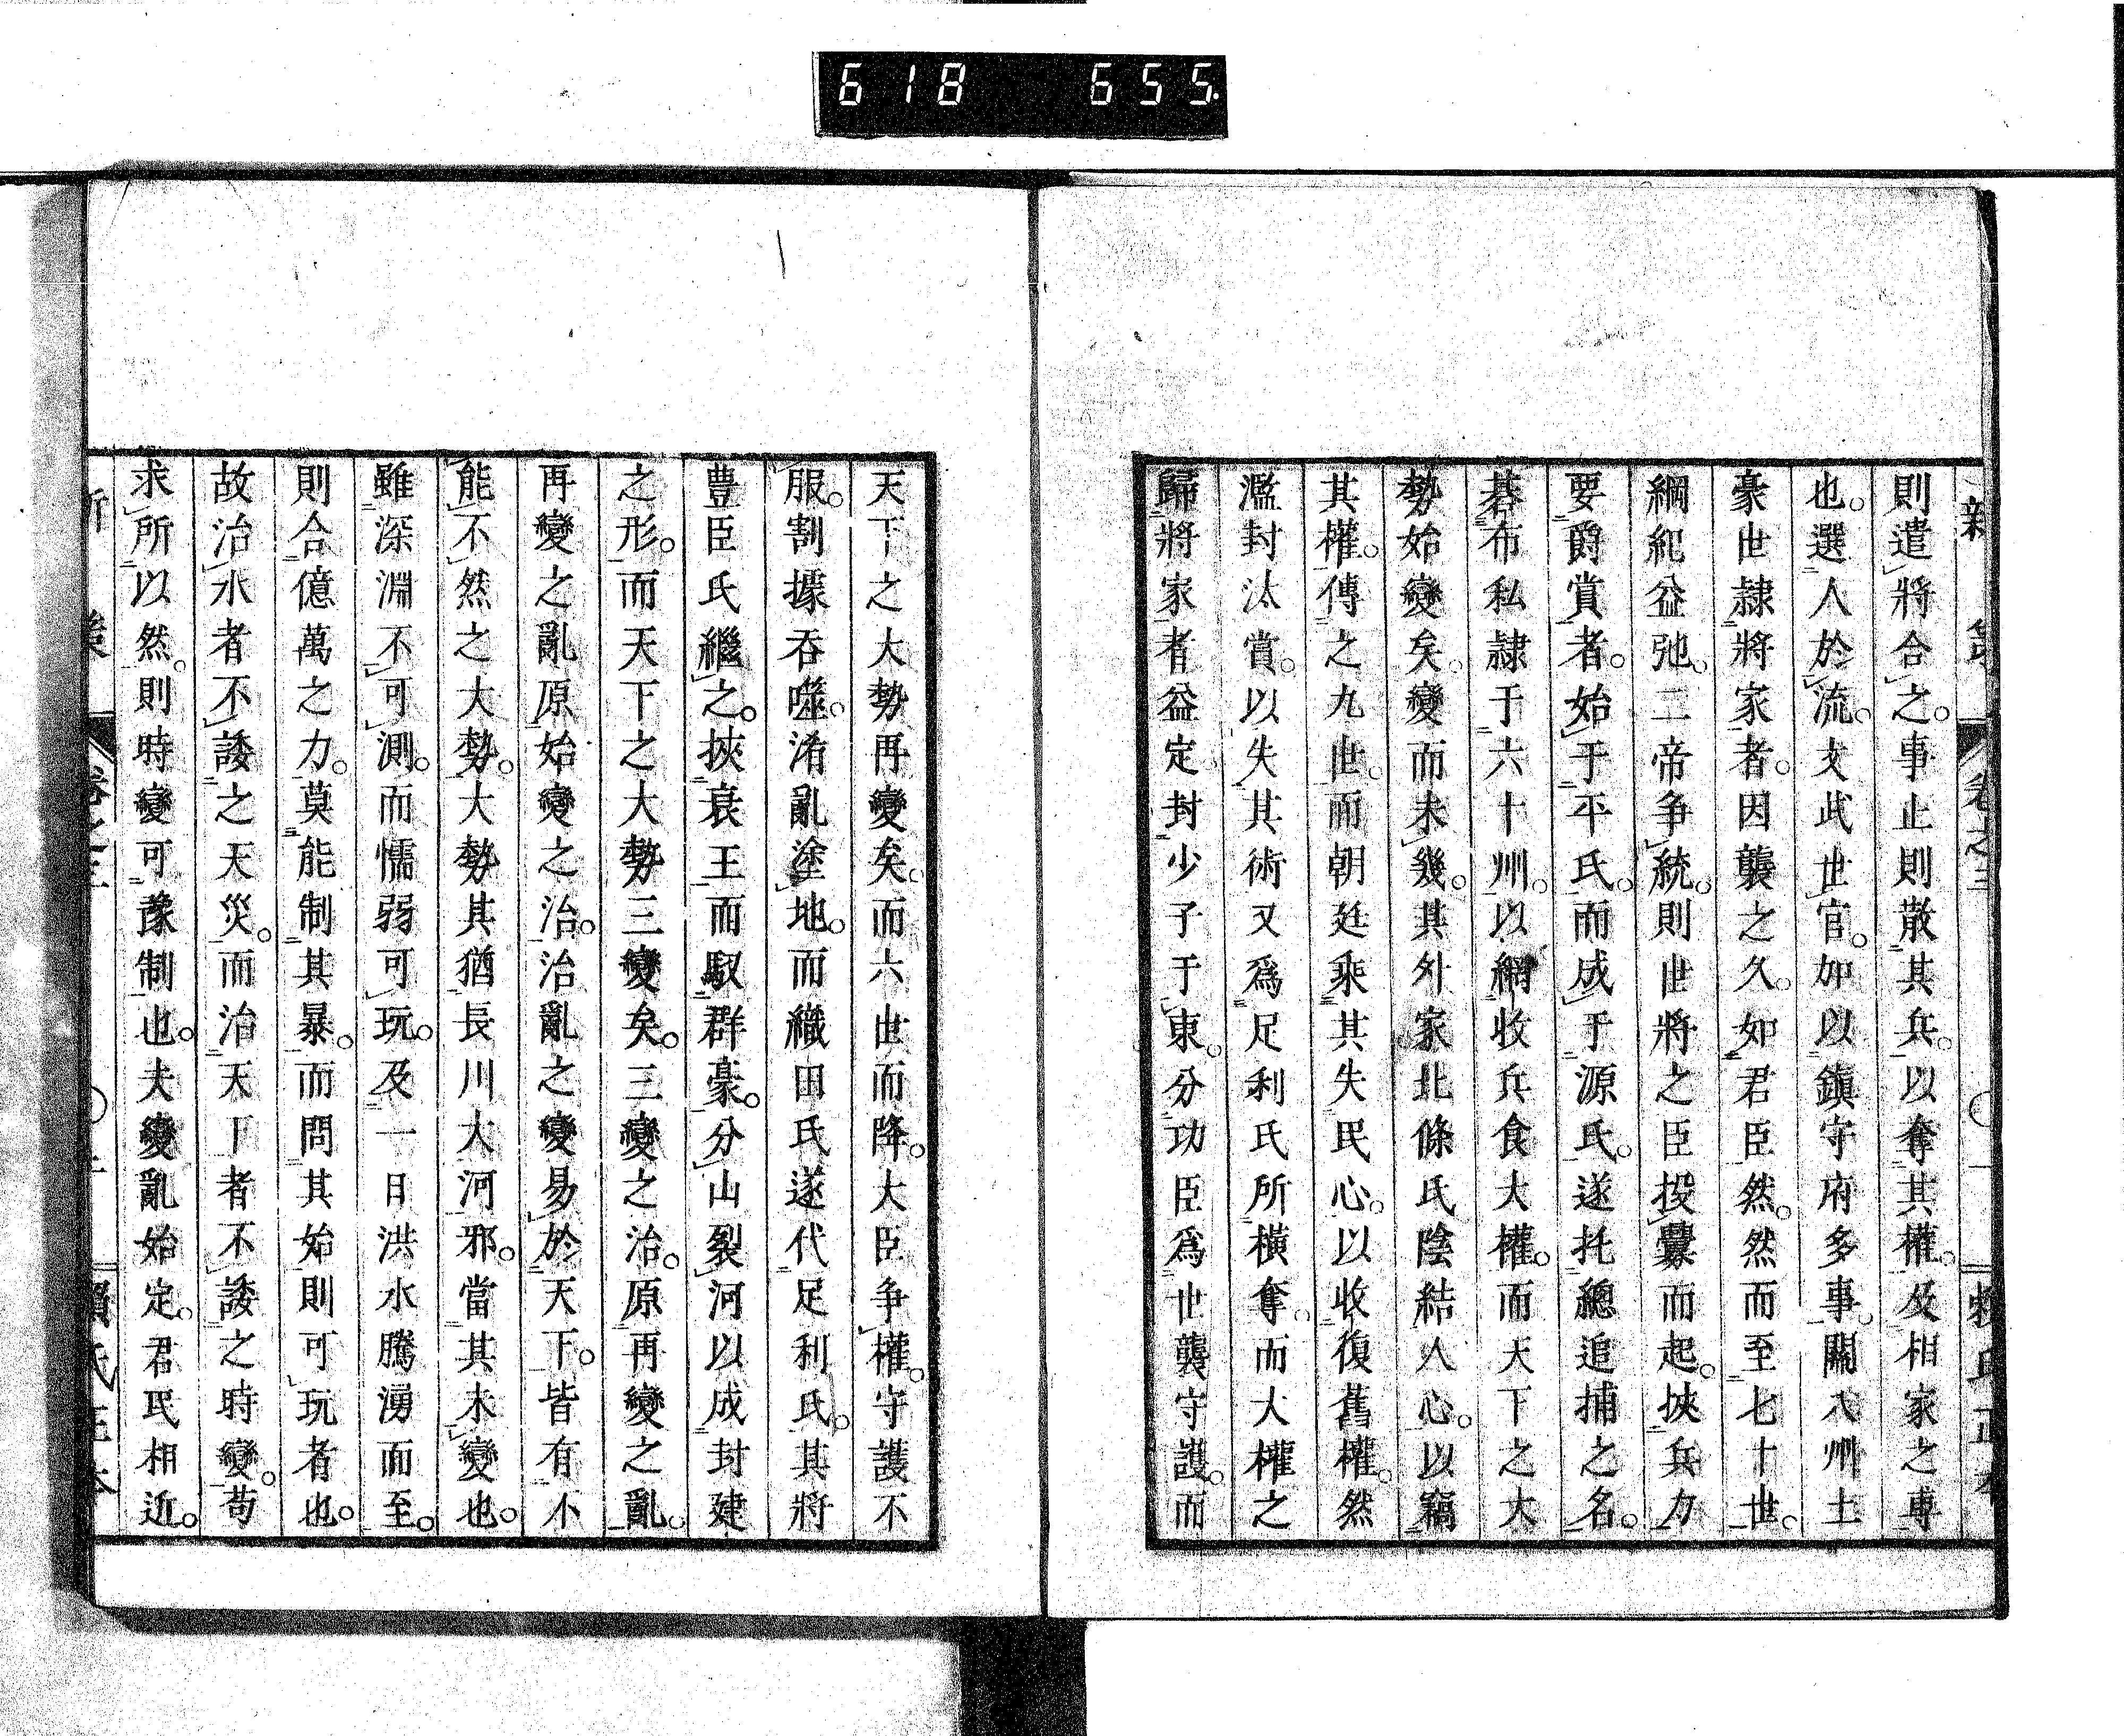 618 655
新策 卷之三 一 賴氏正本
則遣將合之。事止則散其兵。以奪其權。及相家之專
也。選人於流。文武世官。加以鎮守府多事。關八州土
豪世隷將家者。因襲之久。如君臣然。然而至七十世。
綱紀益弛。二帝争統。則世將之臣投釁而起。挾兵力
要爵賞者。始于平氏。而成于源氏。遂托總追捕之名。
碁布私隷于六十州。以網收兵食大權。而天下之大
勢始變矣。變而未幾。其外家北條氏陰結人心。以竊
其權。傳之九世。而朝廷乘其失民心。以收復舊權。然
濫封汰賞。以失其術又爲足利氏所横奪。而大權之
歸將家者益定。封少子于東。分功臣爲世襲守護。而
天下之大勢再變矣。而六世而降。大臣争權。守護不
服。割據呑噬。淆亂塗地。而織田氏遂代足利氏。其將
豊臣氏繼之。挾衰王而馭群豪。分山裂河以成封建
之形。而天下之大勢三變矣。三變之治。原再變之亂。
再變之亂原始變之治。治亂之變易於天下。皆有不
能不然之大勢。大勢其猶長川大河邪。當其未變也。
雖深淵不可測。而懦弱可玩。及一日洪水騰湧而至。
則合億萬之力。莫能制其暴。而問其始則可玩者也。
故治水者不諉之天災。而治天下者不諉之時變。苟
求所以然。則時變可豫制也。夫變亂始定。君民相近。
新策 卷之三 二 賴氏正本